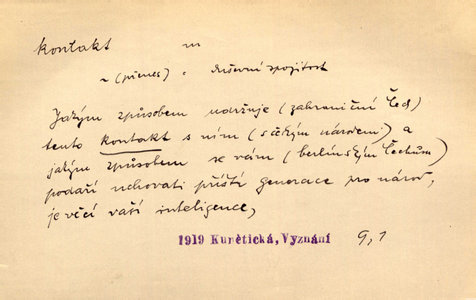 kontakt m
~ (přenes.) = duševní spojitost
Jakým způsobem udržuje (zahraniční Čech)
tento kontakt s ním (s čekým národem) a
jakým způsobem se vám (berlínským Čechům)
podaří uchovati příští generace pro národ,
je věcí vaší inteligence,
1919 Kunětická, Vyznání 9,1